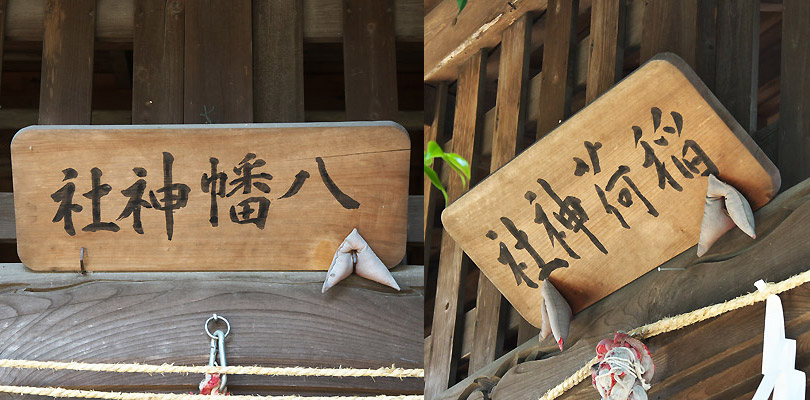 八幡神社
稲荷神社